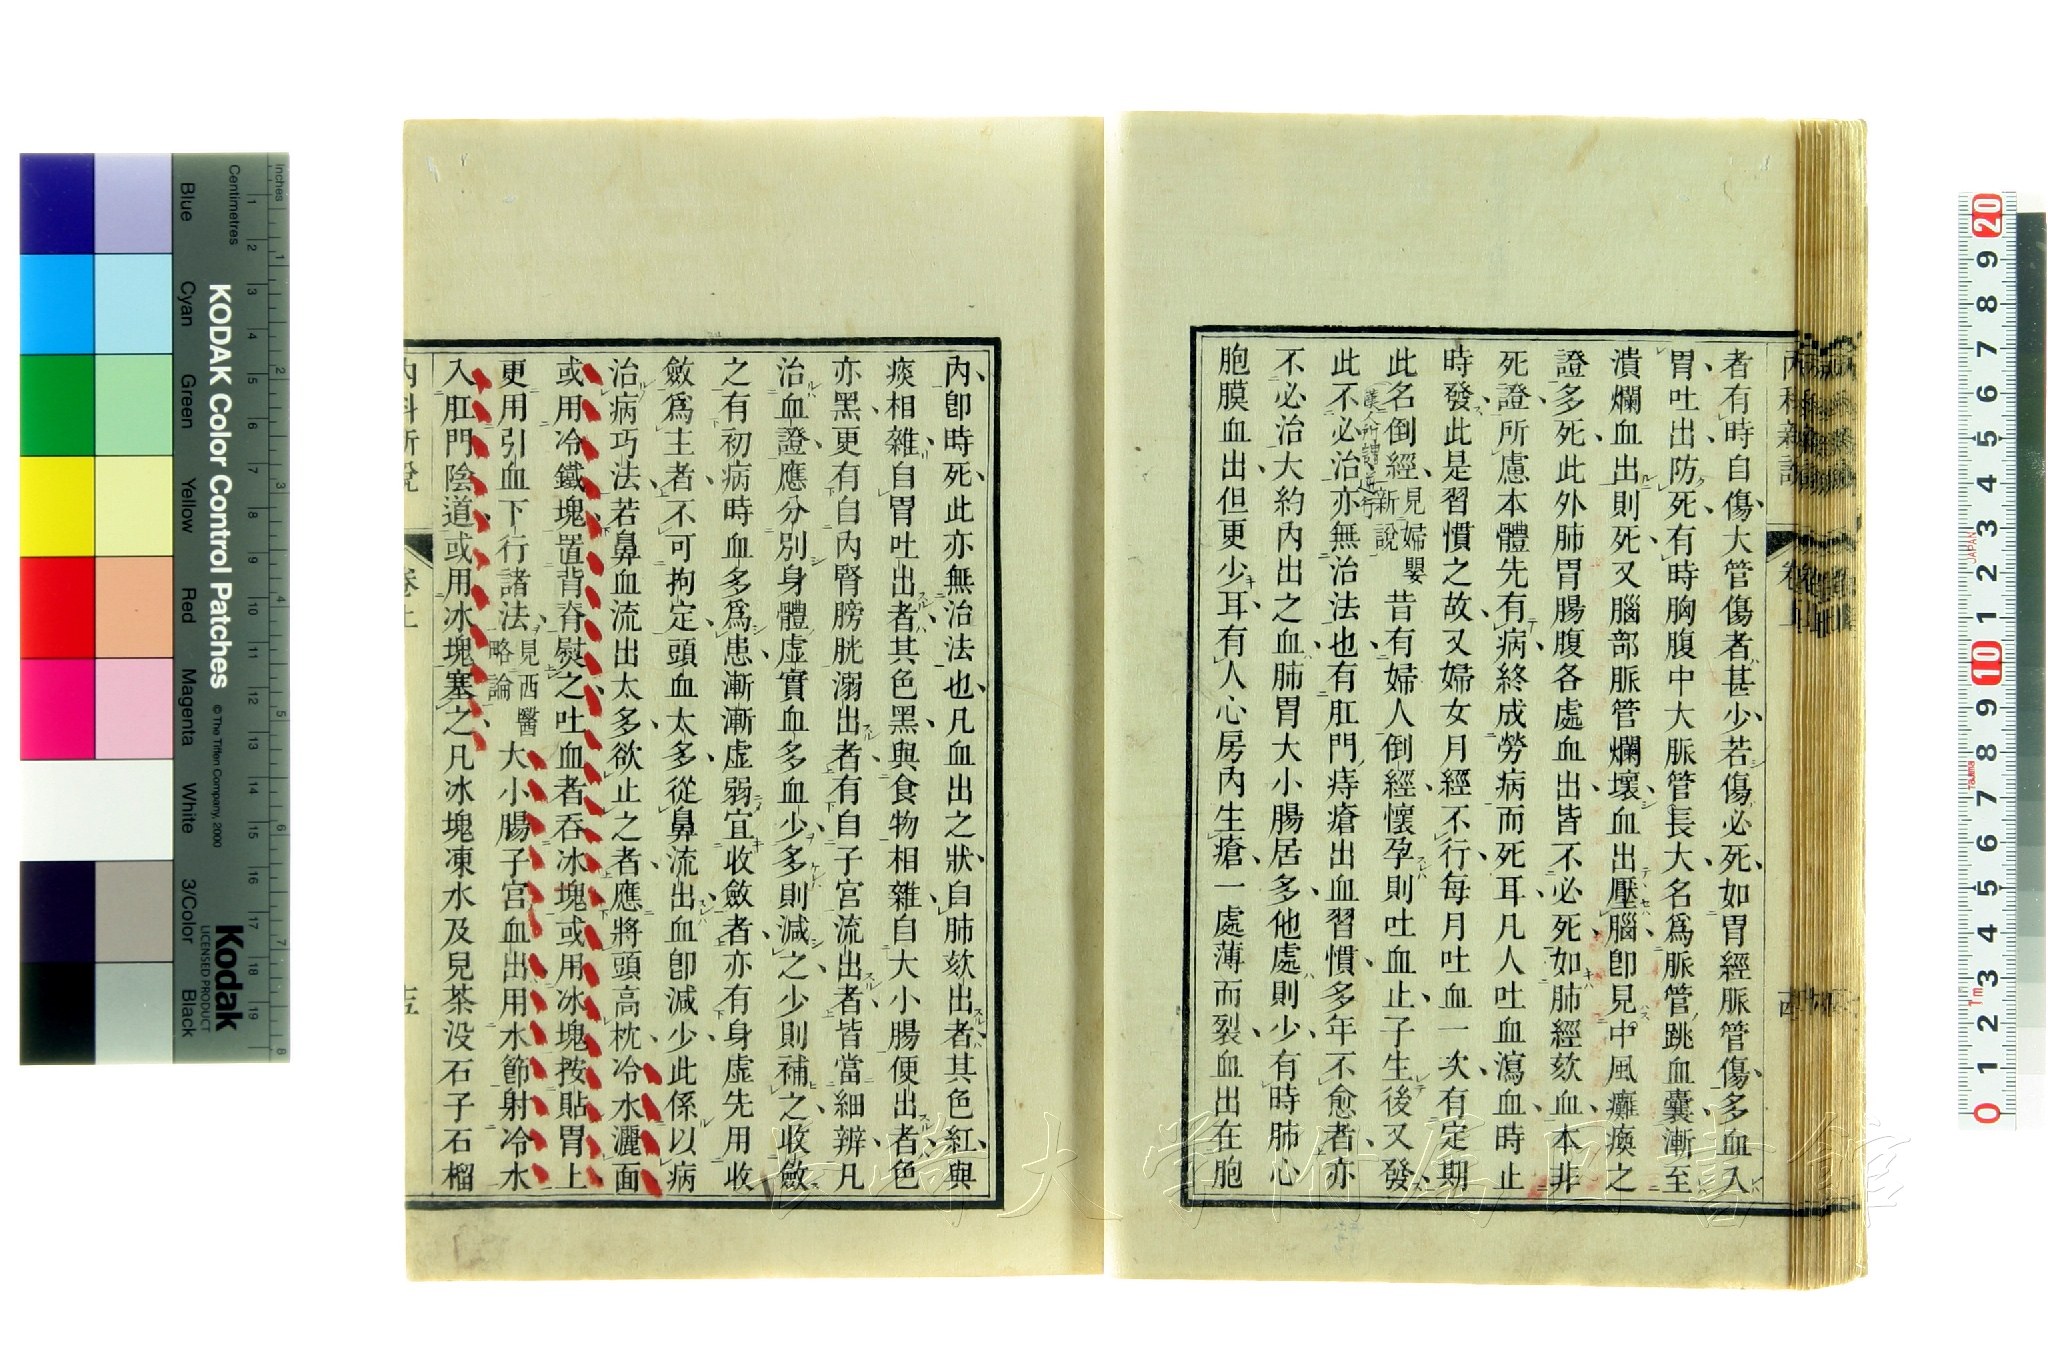 內科新說
卷上
者有時自傷大管傷者甚少若傷必死如胃經脈管傷多血入
胃吐出防死有時胸腹中大脈管長大名爲脈管跳血囊漸至
潰爛血出則死又腦部脈管爛壞血出壓腦卽見中風癱瘓之
證多死此外肺胃腸腹各處血出皆不必死如肺經欬血本非
死證所慮本體先有病終成勞病而死耳凡人吐血瀉血時止
時發此是習慣之故又婦女月經不行每月吐血一次有定期
此名倒經見婦嬰新說昔有婦人倒經懷孕則吐血止子生後又發
此不必治亦無治法也有肛門痔瘡出血習慣多年不愈者亦
不必治大約內出之血肺胃大小腸居多他處則少有時肺心
胞膜血出但更少耳有人心房內生瘡一處薄而裂血出在胞
內卽時死此亦無治法也凡血出之狀自肺欬出者其色紅與
痰相雜自胃吐出者其色黑與食物相雜自大小腸便出者色
亦黑更有自內腎膀胱溺出者有自子宮流出者皆當細辨凡
治血證應分別身體虛實血多血少多則減之少則補之收斂
之有初病時血多爲患漸漸虛弱宜收斂者亦有身虛先用收
斂爲主者不可拘定頭血太多從鼻流出血卽減少此係以病
治病巧法若鼻血流出太多欲止之者應將頭高枕冷水灑面
或用冷鐵塊置背脊熨之吐血者吞冰塊或用冰塊按貼胃上
更用引血下行諸法見西醫略論大小腸子宮血出用水節射冷水
入肛門陰道或用冰塊塞之凡冰塊凍水及兒茶没石子石榴
內科新說
卷上
Inches
Centimetres
Blue
Cyan
Green
Yellow
Red
Magenta
White
3/Color
Black
KODAK Color Control Patches
© The Tiffen Company, 2000
Kodak
LICENSED PRODUCT
長崎大学附属図書館